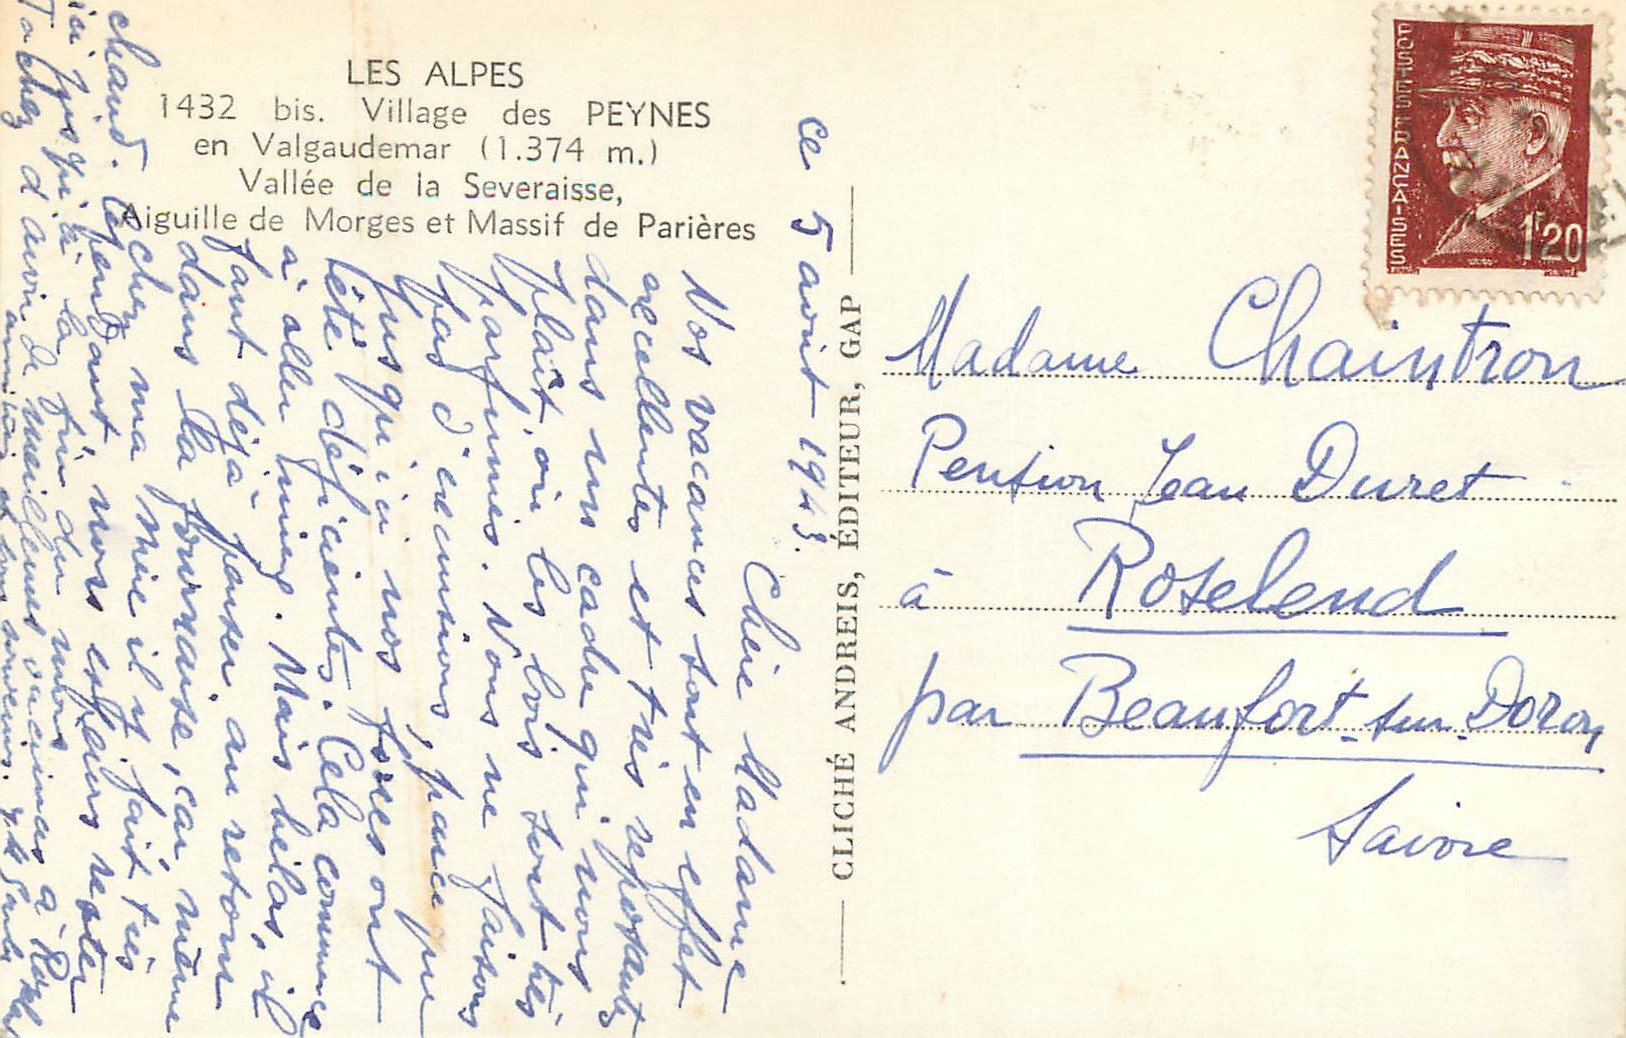 LES ALPES
1432 bis. Village des PEYNES
en Valgaudemar (1.374 m.)
Vallée de la Severaisse,
Aiguille de Morges et Massif de Parières
ce 5 août 1943.
Chère Madame
Nos vacances sont en effet
excellentes et très reposants
dans un cadre qui nous
plaît, où les bois sont très
parfumés. Nous ne faisons
pas d'excursions, parce que
jusqu'ici nos forces ont
été déficientes. Cela commence
à aller mieux. Mais hélas, il
faut déjà penser au retour
dans la fournaise, car même
chez ma Mère il y fait très
chaud. Cependant nous espérons rester
ici jusqu'à la fin du mois
Tachez d'avoir de meilleures vacances à
CLICHÉ ANDREIS, ÉDITEUR, GAP
POSTES FRANÇAISES
1F20
Madame Chaintron
Pension Jean Duret
à Roselend
par Beaufort-sur-Doron
Savoie